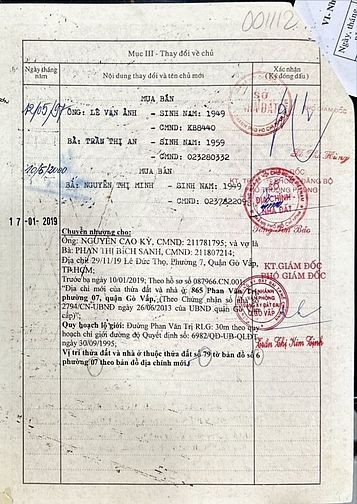 001112
VI- Nh
Mục III - Thay đổi về chủ
Ngày tháng năm
Nội dung thay đổi và tên chủ mới
Xác nhận
(Ký đóng dấu)
MUA BÁN
12/05/97
ÔNG: LÊ VĂN ÁNH - SINH NĂM: 1949
- CMND: K88440
BÀ: TRẦN THỊ AN - SINH NĂM: 1959
- CMND: 023280332
10/5/2000
MUA BÁN
BÀ: NGUYỄN THỊ MINH - SINH NĂM: 1949
- CMND:
17-01-2019
Chuyển nhượng cho:
Ông: NGUYỄN CAO KỲ, CMND: 211781795; và vợ là
Bà: PHAN THỊ BÍCH SANH, CMND: 211807214;
Địa chỉ: 29/11/19 Lê Đức Thọ, Phường 7, Quận Gò Vấp,
TP.HCM;
Trước bạ ngày 10/01/2019; Theo hồ sơ số 087966.CN.001
"Địa chỉ mới của thửa đất và nhà ở: 865 Phan Văn Trị,
phường 07, quận Gò Vấp, (Theo Chứng nhận số nhà
2794/CN-UBND ngày 26/06/2013 của UBND quận Gò Vấp
cấp)";
Quy hoạch lộ giới: Đường Phan Văn Trị RLG: 30m theo quy
hoạch chi giới đường đỏ Quyết định số: 6982/QĐ-UB-QLĐT
ngày 30/09/1995;
Vị trí thửa đất và nhà ở thuộc thửa số 79 tờ bản đồ số 6
phường 07 theo bản đồ địa chính mới./.
PHÓ GIÁM ĐỐC
ĐỊA CHÍNH
NHÀ ĐẤT
KT.GIÁM ĐỐC
PHÓ GIÁM ĐỐC
CHI NHÁNH
VĂN PHÒNG
GÒ VẤP
Trần Thị Kim Định